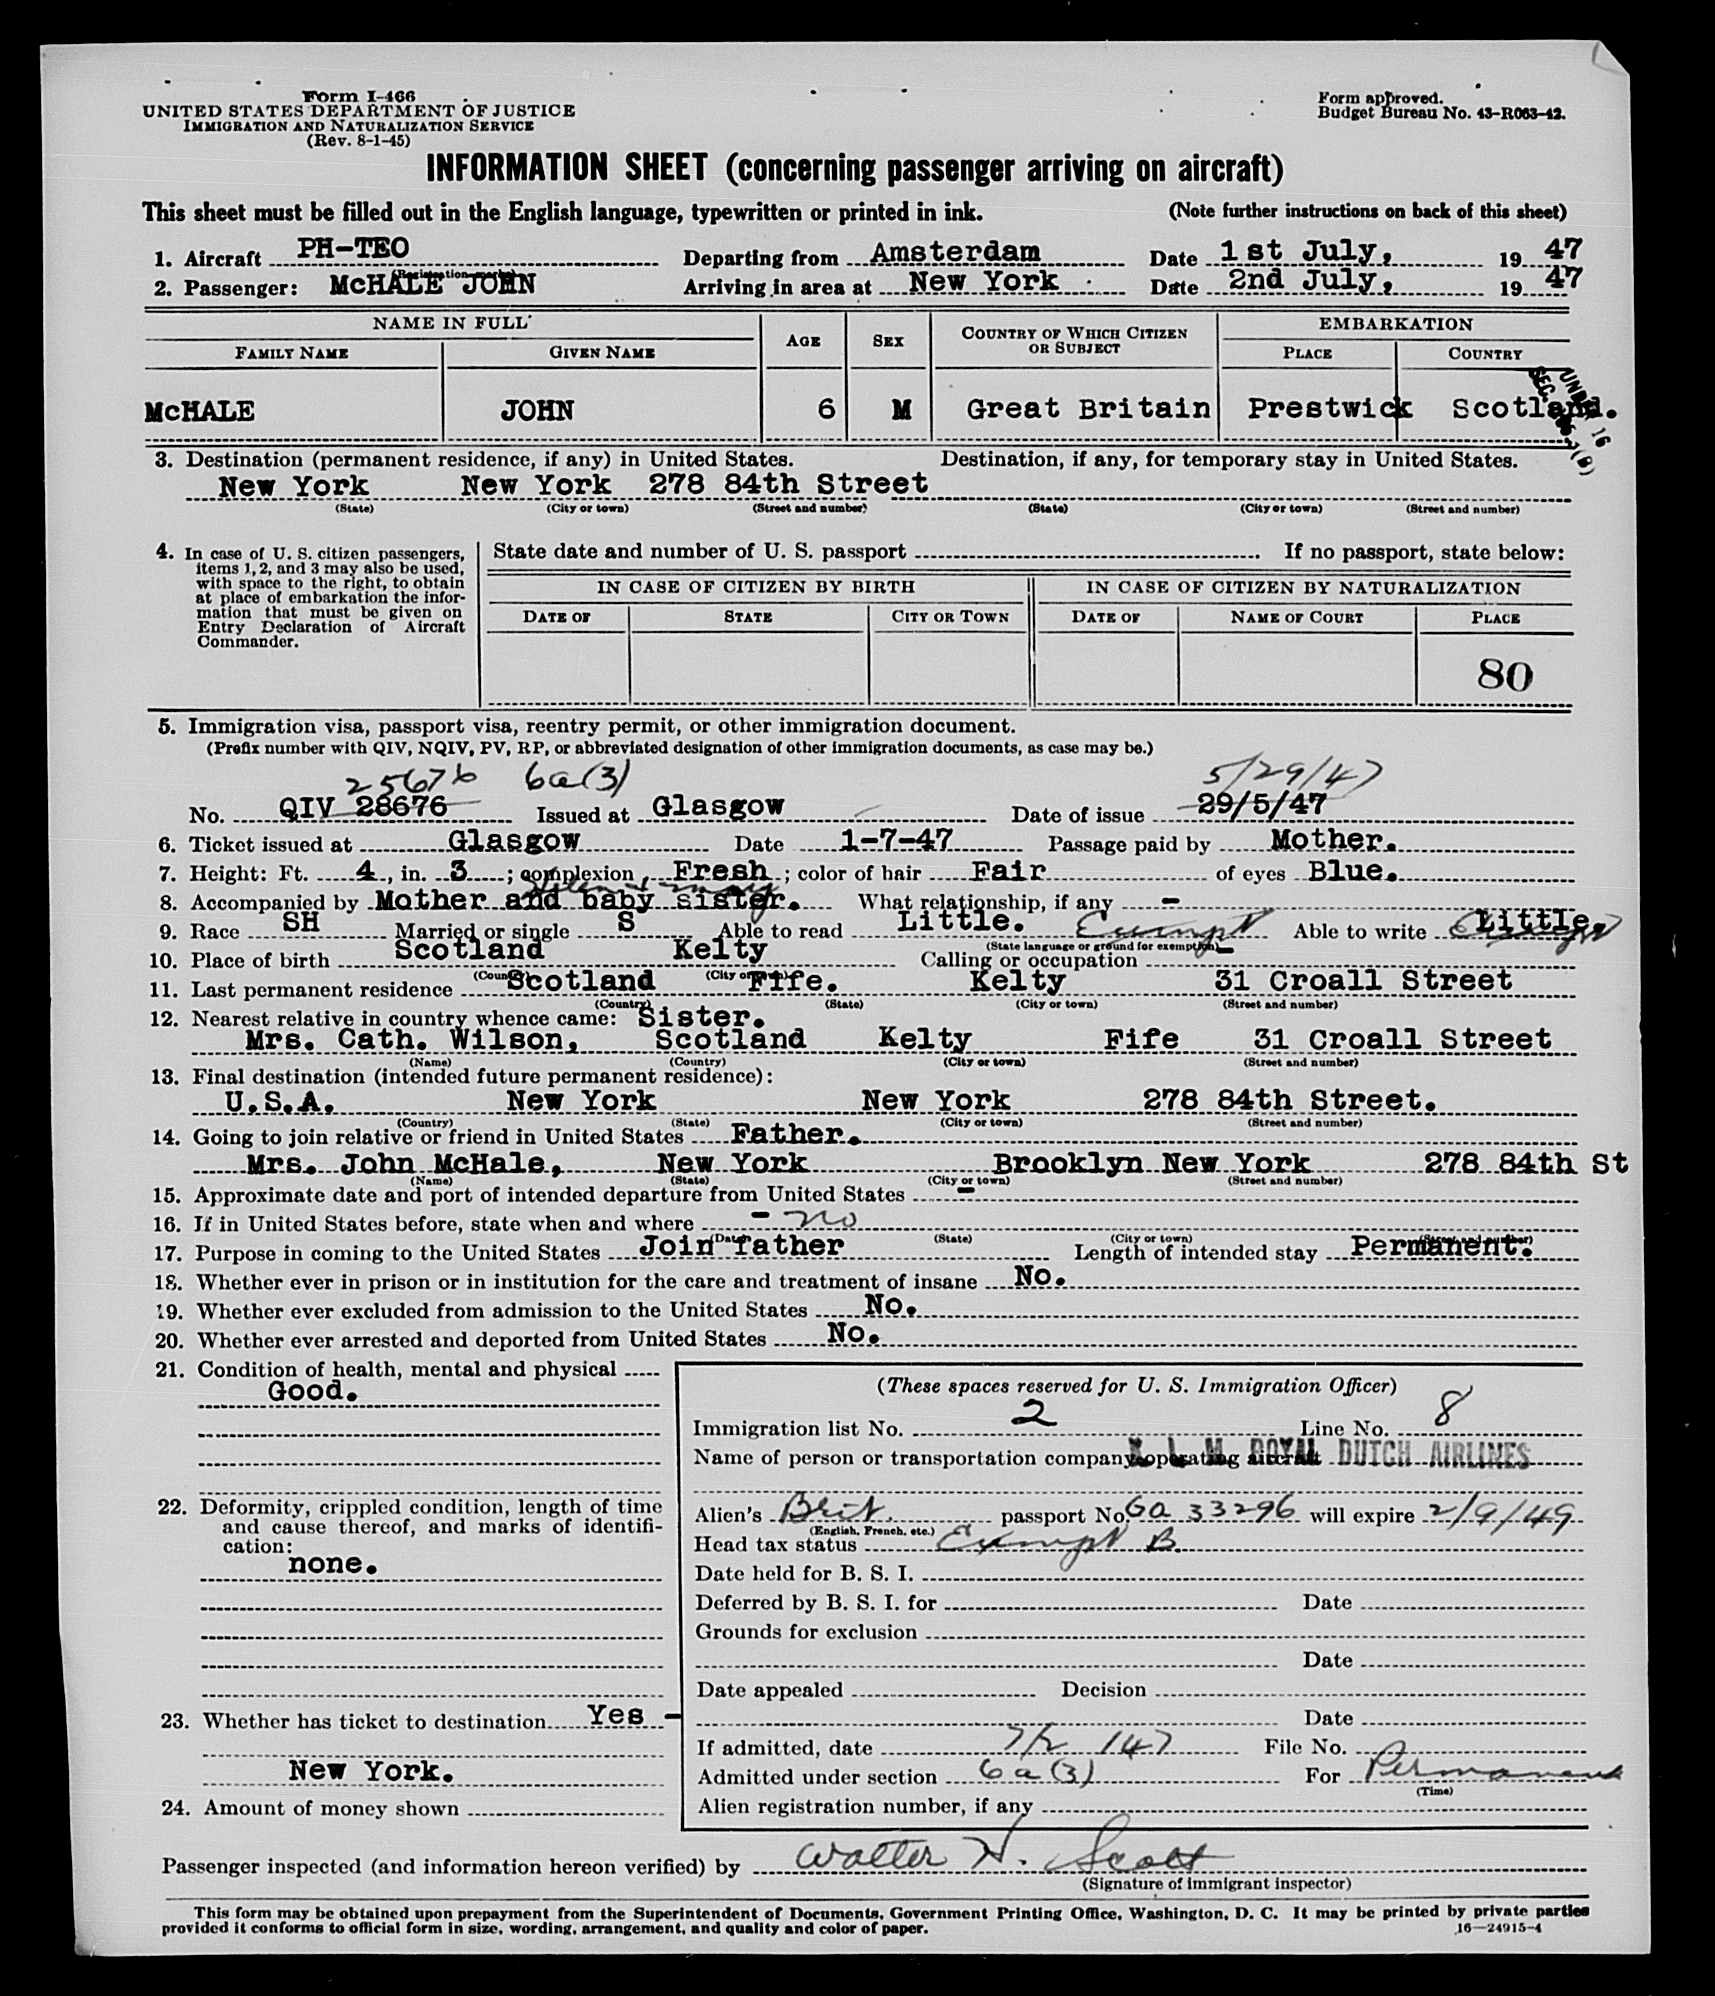 Form I-466
UNITED STATES DEPARTMENT OF JUSTICE
IMMIGRATION AND NATURALIZATION SERVICE
(Rev. 8-1-45)
Form approved.
Budget Bureau No. 43-R063-42.
INFORMATION SHEET (concerning passenger arriving on aircraft)
This sheet must be filled out in the English language, typewritten or printed in ink. (Note further instructions on back of this sheet)
1. Aircraft PH-TEO Departing from Amsterdam Date 1st July, 19 47
(Registration marks)
2. Passenger: McHALE JOHN Arriving in area at New York Date 2nd July, 19 47
NAME IN FULL AGE SEX COUNTRY OF WHICH CITIZEN OR SUBJECT EMBARKATION
FAMILY NAME GIVEN NAME PLACE COUNTRY
McHALE JOHN 6 M Great Britain Prestwick Scotland.
UNDER 16
3. Destination (permanent residence, if any) in United States. Destination, if any, for temporary stay in United States.
New York New York 278 84th Street
(State) (City or town) (Street and number) (State) (City or town) (Street and number)
4. In case of U. S. citizen passengers, items 1, 2, and 3 may also be used, with space to the right, to obtain at place of embarkation the information that must be given on Entry Declaration of Aircraft Commander.
State date and number of U. S. passport If no passport, state below:
IN CASE OF CITIZEN BY BIRTH IN CASE OF CITIZEN BY NATURALIZATION
DATE OF STATE CITY OR TOWN DATE OF NAME OF COURT PLACE
80
5. Immigration visa, passport visa, reentry permit, or other immigration document.
(Prefix number with QIV, NQIV, PV, RP, or abbreviated designation of other immigration documents, as case may be.)
25676 6a(3) 5/29/47
No. QIV 28676 Issued at Glasgow Date of issue 29/5/47
6. Ticket issued at Glasgow Date 1-7-47 Passage paid by Mother.
7. Height: Ft. 4, in. 3; complexion, Fresh; color of hair Fair of eyes Blue.
Helen + Mary
8. Accompanied by Mother and baby sister. What relationship, if any -
9. Race SH Married or single S Able to read Little. Exempt Able to write Little. Exempt
(State language or ground for exemption)
10. Place of birth Scotland Kelty Calling or occupation -
(Country) (City or town)
11. Last permanent residence Scotland Fife. Kelty 31 Croall Street
(Country) (State) (City or town) (Street and number)
12. Nearest relative in country whence came: Sister.
Mrs. Cath. Wilson, Scotland Kelty Fife 31 Croall Street
(Name) (Country) (City or town) (Street and number)
13. Final destination (intended future permanent residence):
U.S.A. New York New York 278 84th Street.
(Country) (State) (City or town) (Street and number)
14. Going to join relative or friend in United States Father.
Mrs. John McHale, New York Brooklyn New York 278 84th St
(Name) (State) (City or town) (Street and number)
15. Approximate date and port of intended departure from United States -
16. If in United States before, state when and where - no
(Date) (State) (City or town) (Street and number)
17. Purpose in coming to the United States Join father Length of intended stay Permanent.
18. Whether ever in prison or in institution for the care and treatment of insane No.
19. Whether ever excluded from admission to the United States No.
20. Whether ever arrested and deported from United States No.
21. Condition of health, mental and physical
Good.
22. Deformity, crippled condition, length of time and cause thereof, and marks of identification:
none.
23. Whether has ticket to destination Yes -
New York.
24. Amount of money shown
(These spaces reserved for U. S. Immigration Officer)
Immigration list No. 2 Line No. 8
Name of person or transportation company operating aircraft K. L. M. ROYAL DUTCH AIRLINES
Alien's Brit. passport No. Ga 33296 will expire 2/9/49
(English, French, etc.)
Head tax status Exempt B.
Date held for B. S. I.
Deferred by B. S. I. for Date
Grounds for exclusion
Date
Date appealed Decision
Date
If admitted, date 7/2/47 File No.
Admitted under section 6a(3) For Permanent
(Time)
Alien registration number, if any
Passenger inspected (and information hereon verified) by Walter H. Scott
(Signature of immigrant inspector)
This form may be obtained upon prepayment from the Superintendent of Documents, Government Printing Office, Washington, D. C. It may be printed by private parties
provided it conforms to official form in size, wording, arrangement, and quality and color of paper.
16-24915-4